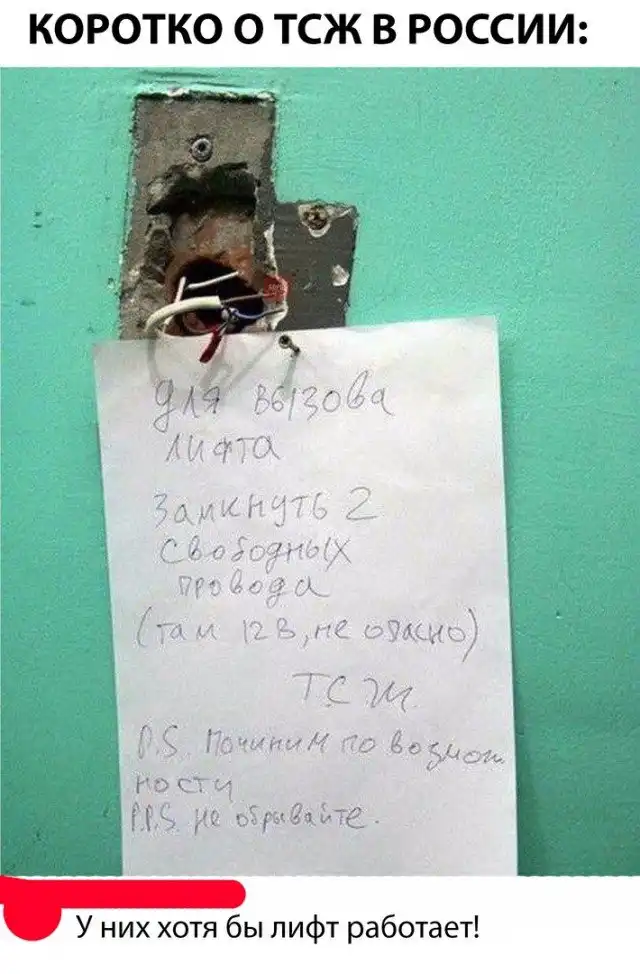 КОРОТКО О ТСЖ В РОССИИ:
Для вызова
лифта
Замкнуть 2
свободных
провода
(там 12 В, не опасно)
ТСЖ
P.S. Починим по возмож
ности
P.P.S. не обрывайте.
У них хотя бы лифт работает!